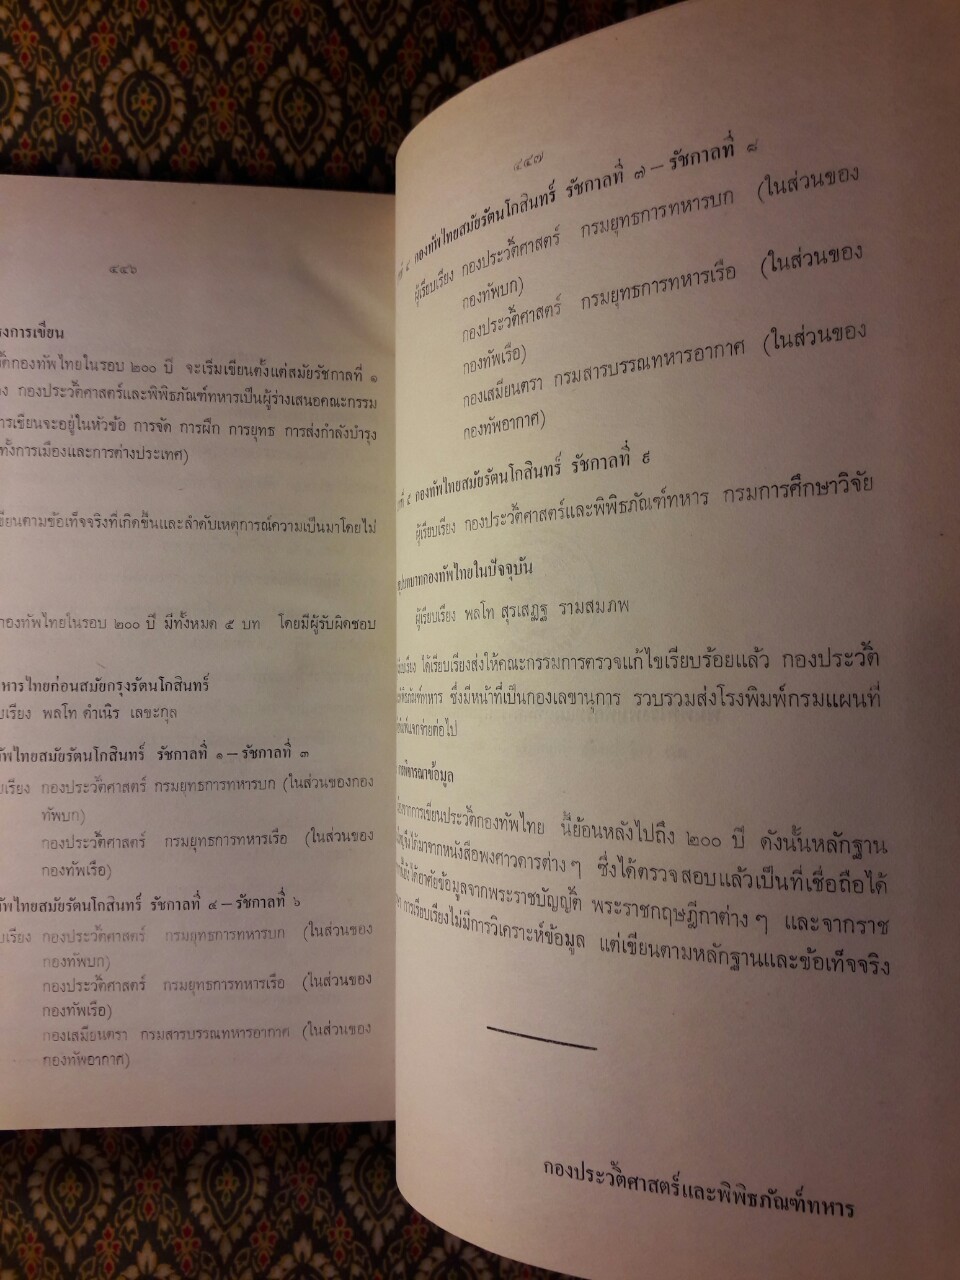 ๔๔๖
การเขียน
กองทัพไทยในรอบ ๒๐๐ ปี จะเริ่มเขียนตั้งแต่สมัยรัชกาลที่ ๑
กองประวัติศาสตร์และพิพิธภัณฑ์ทหารเป็นผู้ร่างเสนอคณะกรรม
การเขียนจะอยู่ในหัวข้อ การจัด การฝึก การยุทธ การส่งกำลังบำรุง
ทั้งการเมืองและการต่างประเทศ)
เขียนตามข้อเท็จจริงที่เกิดขึ้นและลำดับเหตุการณ์ความเป็นมาโดยไม่
กองทัพไทยในรอบ ๒๐๐ ปี มีทั้งหมด ๕ บท โดยมีผู้รับผิดชอบ
ทหารไทยก่อนสมัยกรุงรัตนโกสินทร์
เรียง พลโท ดำเนิร เลขะกุล
ทัพไทยสมัยรัตนโกสินทร์ รัชกาลที่ ๑ – รัชกาลที่ ๓
เรียง กองประวัติศาสตร์ กรมยุทธการทหารบก (ในส่วนของกอง
ทัพบก)
กองประวัติศาสตร์ กรมยุทธการทหารเรือ (ในส่วนของ
กองทัพเรือ)
ทัพไทยสมัยรัตนโกสินทร์ รัชกาลที่ ๔ – รัชกาลที่ ๖
เรียง กองประวัติศาสตร์ กรมยุทธการทหารบก (ในส่วนของ
กองทัพบก)
กองประวัติศาสตร์ กรมยุทธการทหารเรือ (ในส่วนของ
กองทัพเรือ)
กองเสมียนตรา กรมสารบรรณทหารอากาศ (ในส่วนของ
กองทัพอากาศ)
๔๔๗
ที่ ๔ กองทัพไทยสมัยรัตนโกสินทร์ รัชกาลที่ ๗ – รัชกาลที่ ๘
ผู้เรียบเรียง กองประวัติศาสตร์ กรมยุทธการทหารบก (ในส่วนของ
กองทัพบก)
กองประวัติศาสตร์ กรมยุทธการทหารเรือ (ในส่วนของ
กองทัพเรือ)
กองเสมียนตรา กรมสารบรรณทหารอากาศ (ในส่วนของ
กองทัพอากาศ)
ที่ ๕ กองทัพไทยสมัยรัตนโกสินทร์ รัชกาลที่ ๙
ผู้เรียบเรียง กองประวัติศาสตร์และพิพิธภัณฑ์ทหาร กรมการศึกษาวิจัย
บทบาทกองทัพไทยในปัจจุบัน
ผู้เรียบเรียง พลโท สุรเสฏฐ รามสมภพ
ได้เรียบเรียงส่งให้คณะกรรมการตรวจแก้ไขเรียบร้อยแล้ว กองประวัติ
ซึ่งมีหน้าที่เป็นกองเลขานุการ รวบรวมส่งโรงพิมพ์กรมแผนที่
แจกจ่ายต่อไป
การพิจารณาข้อมูล
จากการเขียนประวัติกองทัพไทย นี้ย้อนหลังไปถึง ๒๐๐ ปี ดังนั้นหลักฐาน
จึงได้มาจากหนังสือพงศาวดารต่าง ๆ ซึ่งได้ตรวจสอบแล้วเป็นที่เชื่อถือได้
ได้อาศัยข้อมูลจากพระราชบัญญัติ พระราชกฤษฎีกาต่าง ๆ และจากราช
การเรียบเรียงไม่มีการวิเคราะห์ข้อมูล แต่เขียนตามหลักฐานและข้อเท็จจริง
กองประวัติศาสตร์และพิพิธภัณฑ์ทหาร